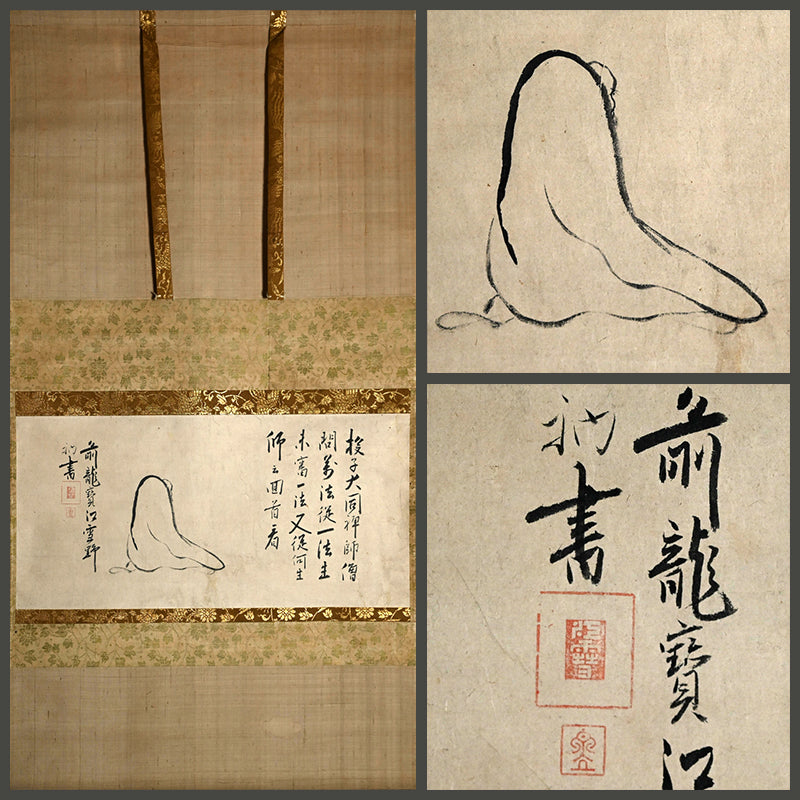 投子大同禪師僧
問萬法從一法生
未審一法又從何生
師云回首看
前龍寶江雪野
衲書
前龍寶江
衲書